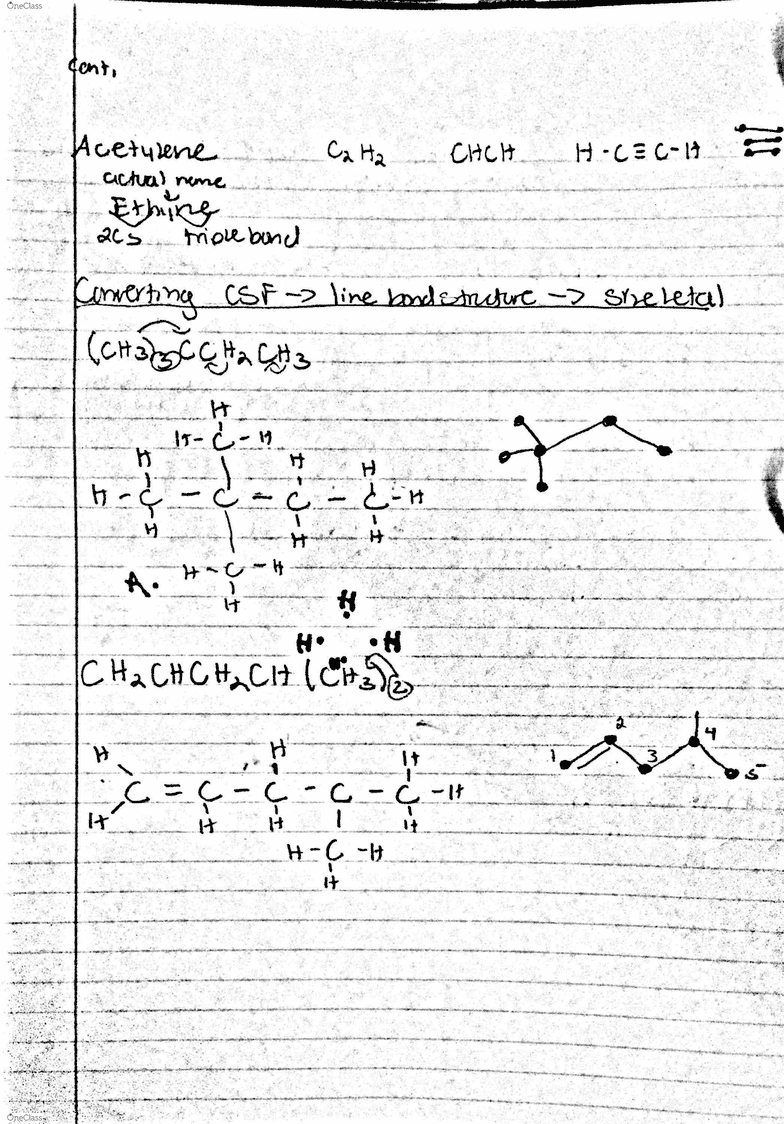 OneClass
Cont.
Acetylene C2H2 CHCH H-C≡C-H
actual name
Ethine
2Cs triple bond
Converting CSF -> line bond structure -> skeletal
(CH3)3CCH2CH3
H
H-C-H
H H H
H-C-C-C-C-H
H H H
A. H-C-H
H
H
H H
CH2CHCH2CH(CH3)2
H H H 1 2 3 4 5
C=C-C-C-C-H
H H H H
H-C-H
H
OneClass